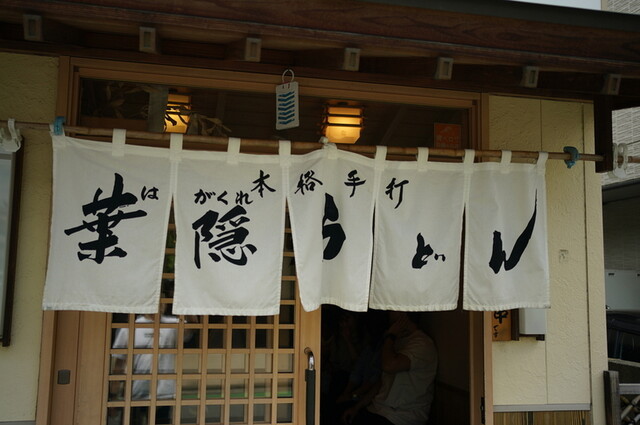 本格手打
は がくれ
葉隠うどん